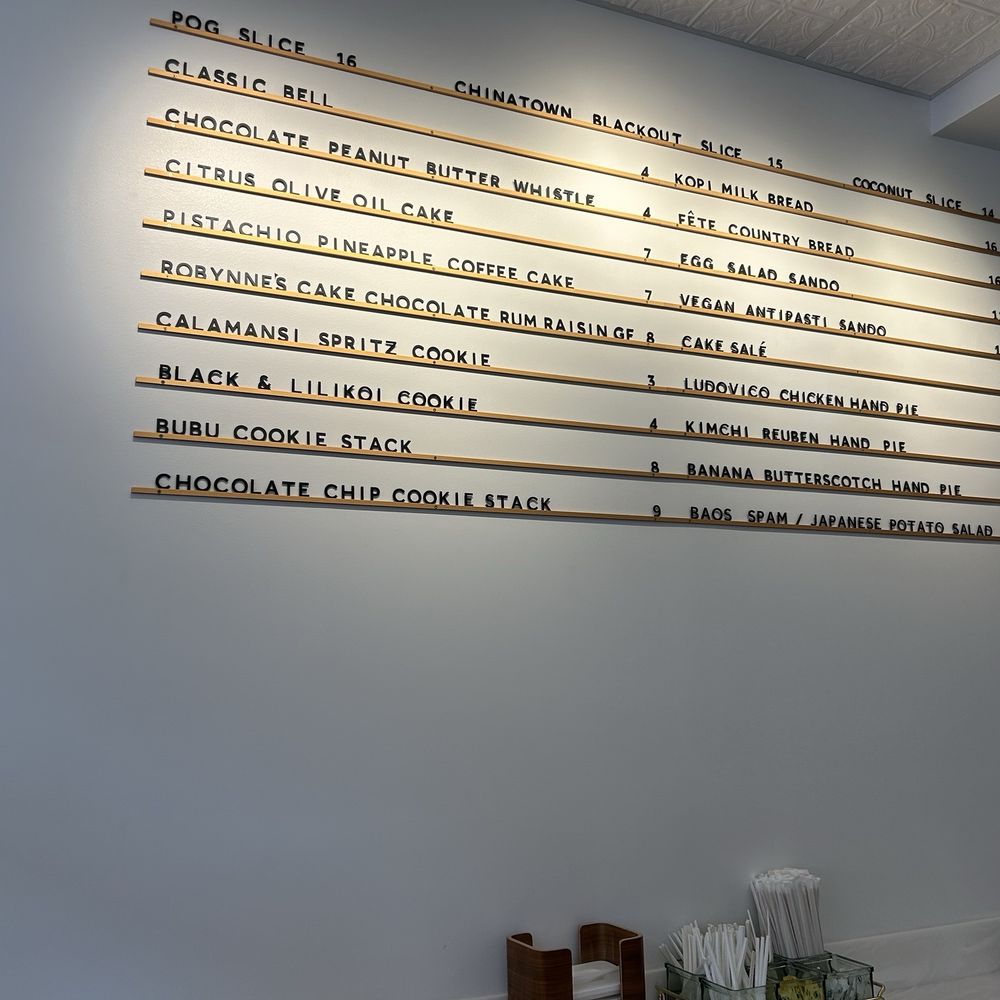 POG SLICE 16 CHINATOWN BLACKOUT SLICE 15 COCONUT SLICE 14
CLASSIC BELL 4 KOPI MILK BREAD 16
CHOCOLATE PEANUT BUTTER WHISTLE 4 FÊTE COUNTRY BREAD
CITRUS OLIVE OIL CAKE 7 EGG SALAD SANDO
PISTACHIO PINEAPPLE COFFEE CAKE 7 VEGAN ANTIPASTI SANDO
ROBYNNE'S CAKE CHOCOLATE RUM RAISIN GF 8 CAKE SALÉ
CALAMANSI SPRITZ COOKIE 3 LUDOVICO CHICKEN HAND PIE
BLACK & LILIKOI COOKIE 4 KIMCHI REUBEN HAND PIE
BUBU COOKIE STACK 8 BANANA BUTTERSCOTCH HAND PIE
CHOCOLATE CHIP COOKIE STACK 9 BAOS SPAM / JAPANESE POTATO SALAD